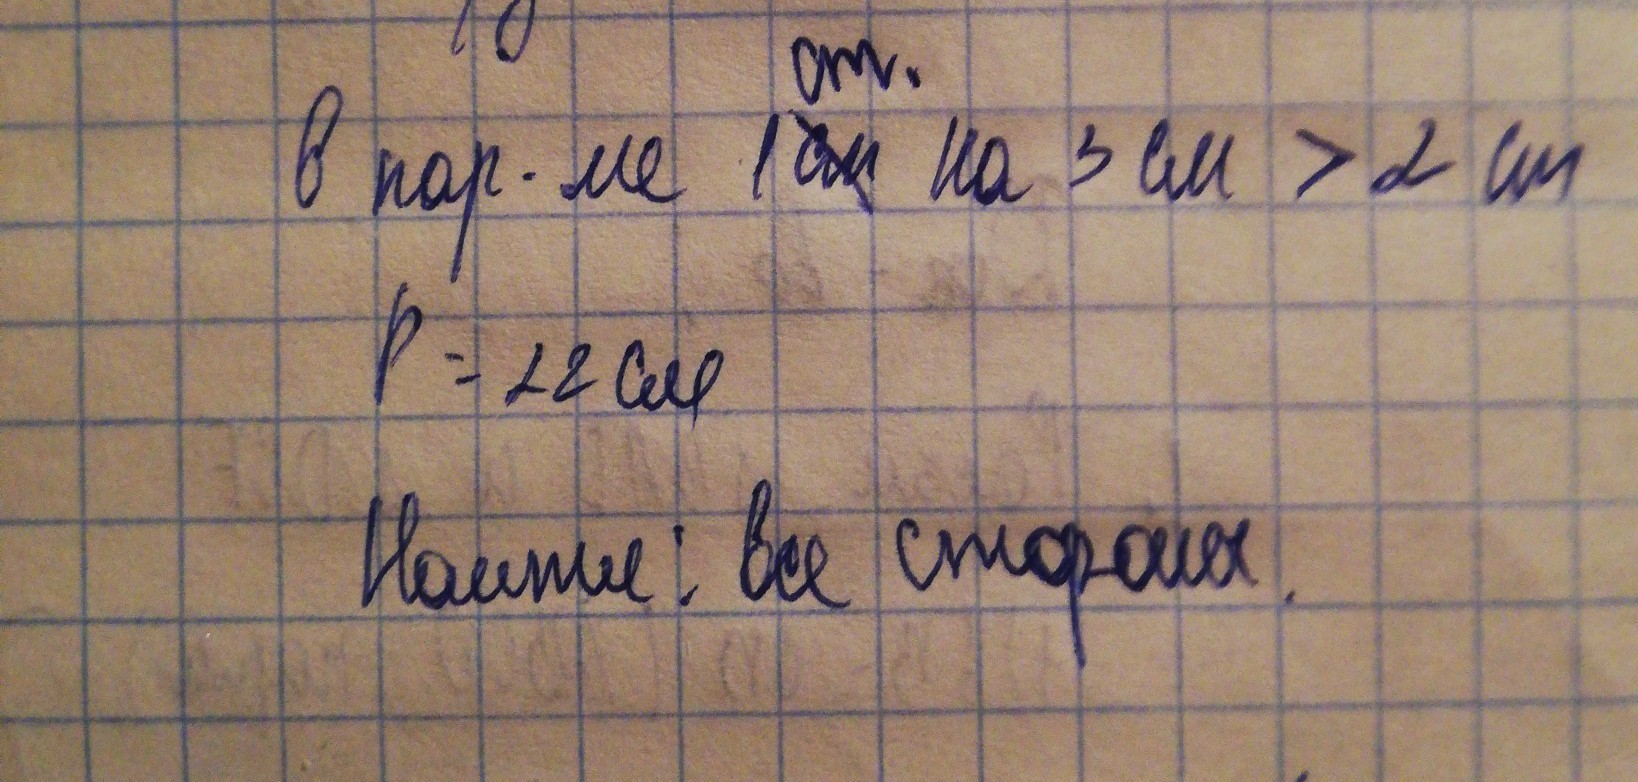 ст.
В пар-ме 1 на 3 см > 2 ст
P = 22 см
Найти: все стороны.